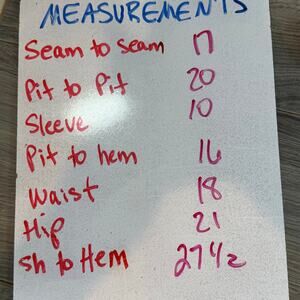 MEASUREMENTS
Seam to seam 17
Pit to Pit 20
Sleeve 10
Pit to hem 16
Waist 18
Hip 21
Sh to Hem 27 1/2